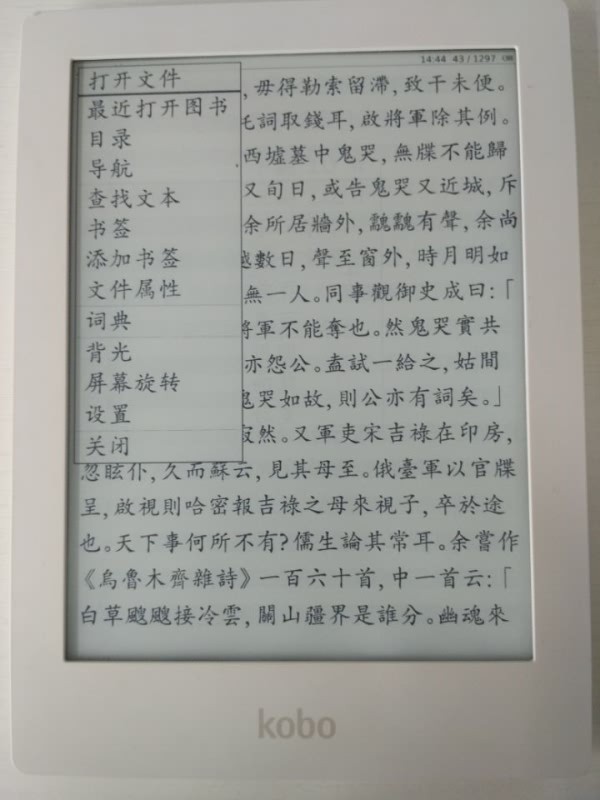 14:44 43 / 1297
打开文件
最近打开图书
目录
导航
查找文本
书签
添加书签
文件属性
词典
背光
屏幕旋转
设置
关闭
,毋得勒索留滯,致干未便。
詞取錢耳,啟將軍除其例。
西墟墓中鬼哭,無牒不能歸
又旬日,或告鬼哭又近城,斥
余所居牆外,䫻䫻有聲,余尚
越數日,聲至窗外,時月明如
無一人。同事觀御史成曰:「
將軍不能奪也。然鬼哭實共
亦怨公。盍試一給之,姑間
鬼哭如故,則公亦有詞矣。」
寂然。又軍吏宋吉祿在印房,
忽眩仆,久而蘇云,見其母至。俄臺軍以官牒
呈,啟視則哈密報吉祿之母來視子,卒於途
也。天下事何所不有?儒生論其常耳。余嘗作
《烏魯木齊雜詩》一百六十首,中一首云:「
白草颼颼接冷雲,關山疆界是誰分。幽魂來
kobo